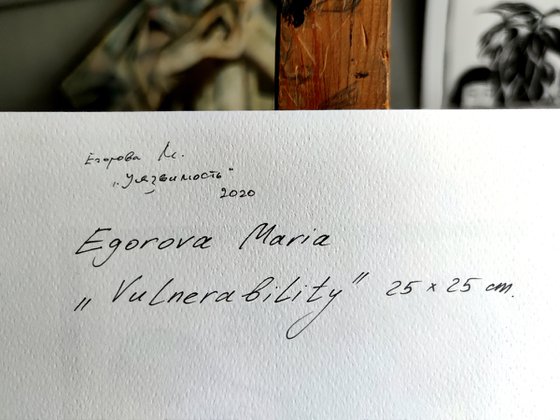 Егорова М.
„Уязвимость"
2020
Egorova Maria
„Vulnerability" 25 × 25 cm.